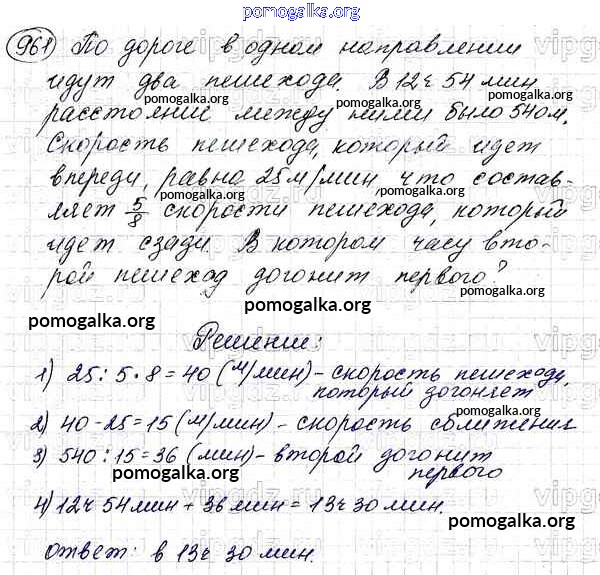 pomogalka.org
961) По дороге в одном направлении
идут два пешехода. В 12ч 54 мин
pomogalka.org pomogalka.org
расстояние между ними было 540м.
Скорость пешехода, который идет
pomogalka.org
впереди, равна 25м/мин что состав-
pomogalka.org
ляет 5/8 скорости пешехода, который
идет сзади. В котором часу вто-
рой пешеход догонит первого?
pomogalka.org pomogalka.org pomogalka.org
Решение:
1) 25:5·8=40 (м/мин)-скорость пешехода,
который догоняет
pomogalka.org
2) 40-25=15 (м/мин) - скорость сближения
pomogalka.org
3) 540:15=36 (мин)- второй догонит
первого
pomogalka.org
4) 12ч 54мин + 36мин = 13ч 30 мин.
pomogalka.org
Ответ: в 13ч 30 мин.
pomogalka.org